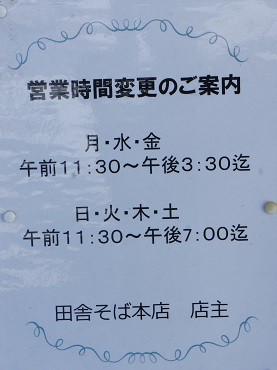 営業時間変更のご案内
月・水・金
午前11:30～午後3:30迄
日・火・木・土
午前11:30～午後7:00迄
田舎そば本店　店主